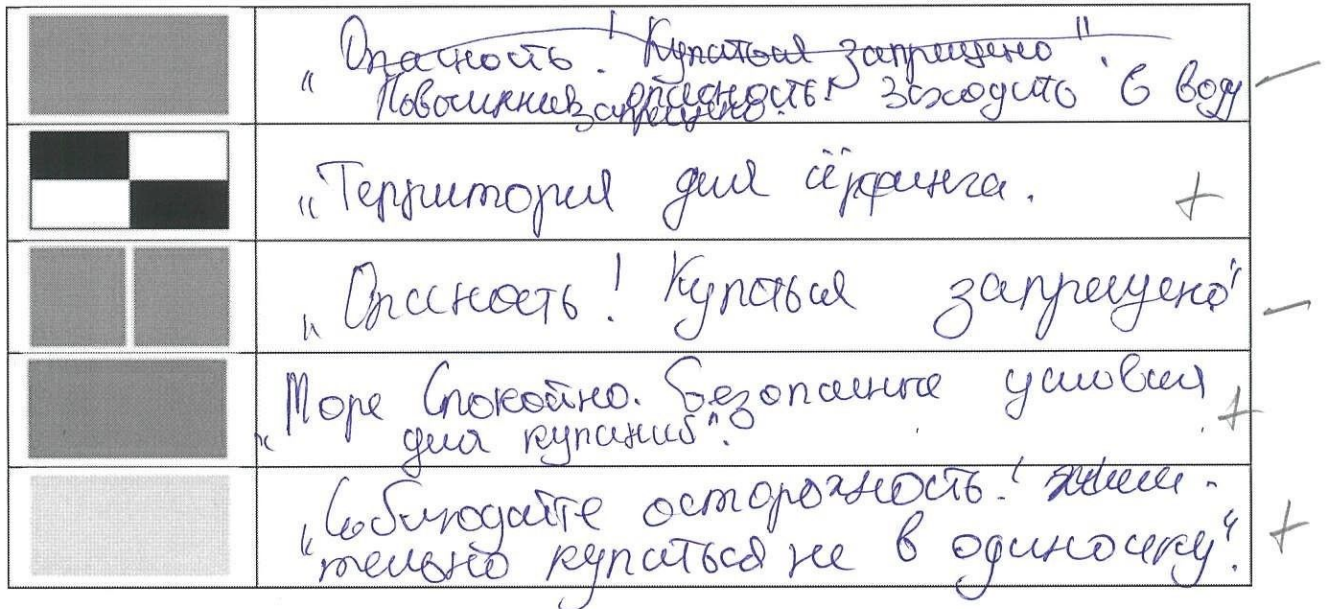 „Опасность! Купаться запрещено".
Повышенная опасность! Заходить в воду —
запрещено.
„Территория для сёрфинга. +
„Опасность! Купаться запрещено" —
„Море Спокойно. Безопасные условия +
для купания".
„Соблюдайте осторожность! Жела-
тельно купаться не в одиночку". +